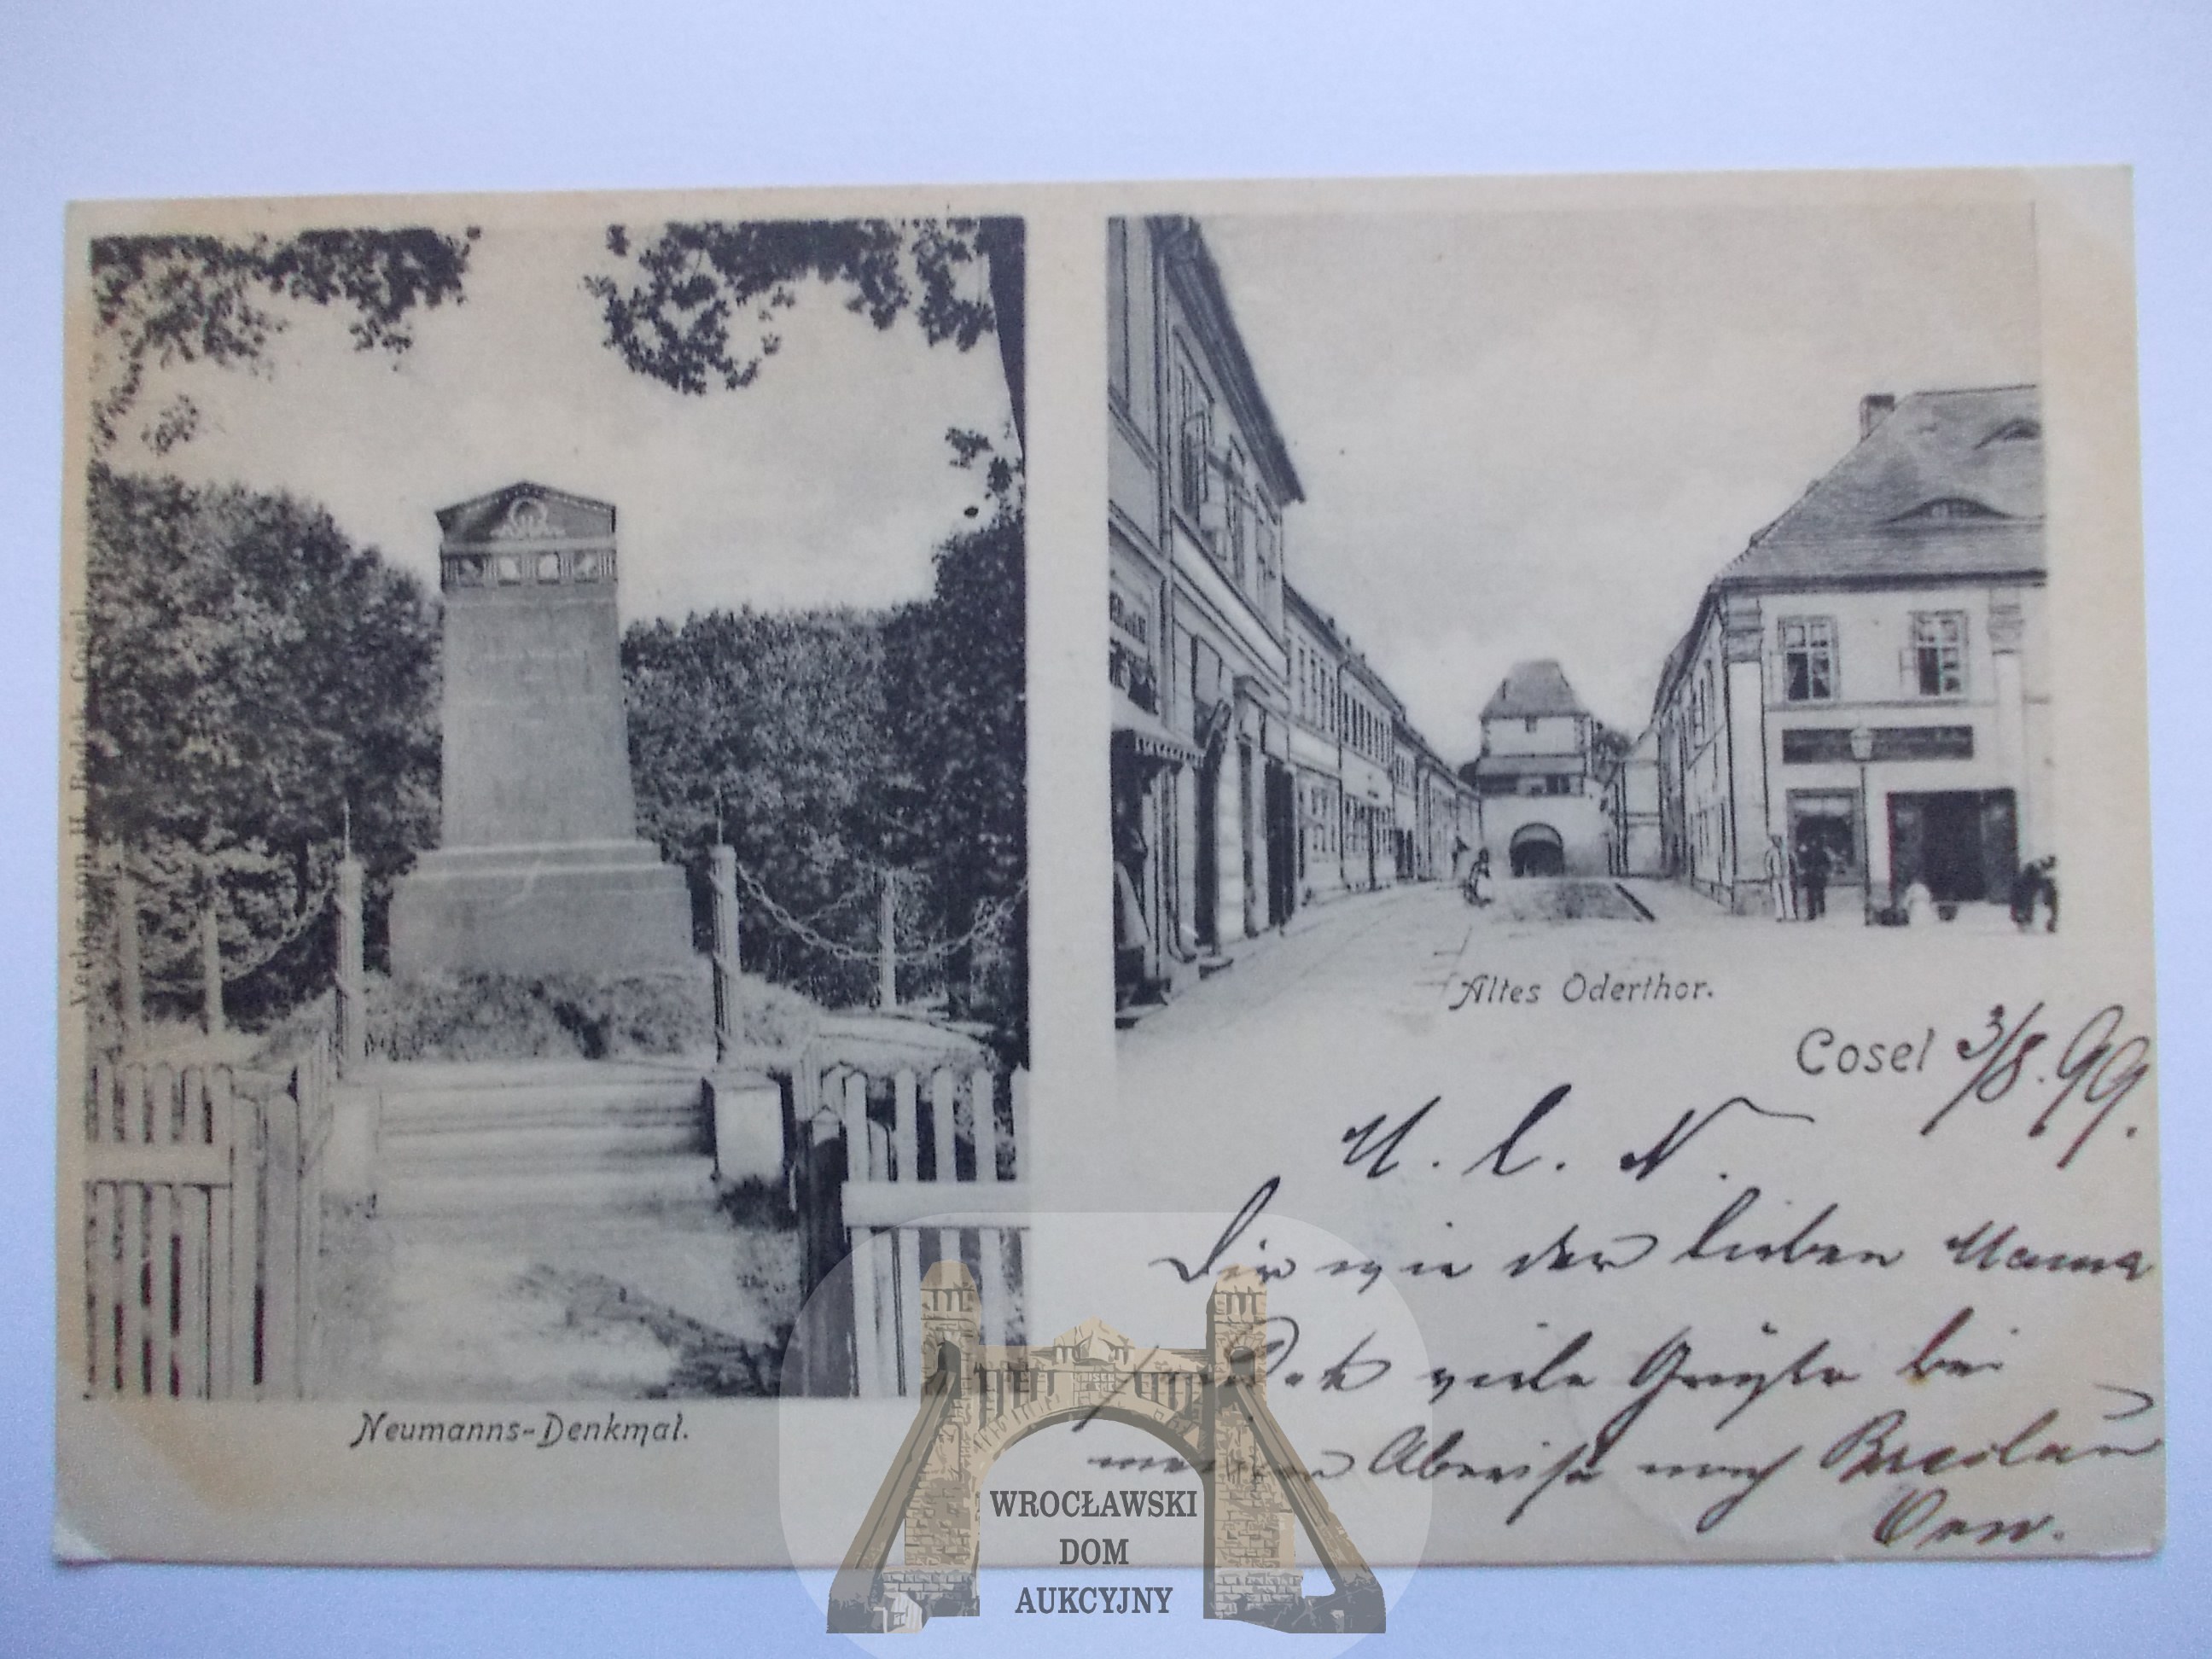 Verlag von H. Cosel.
Neumanns-Denkmal.
Altes Oderthor.
Cosel 3/8. 99.
M. l. N.
Dir wie der lieben Mama
viele Grüße bei
meiner Abreise nach Breslau
WROCŁAWSKI
DOM
AUKCYJNY